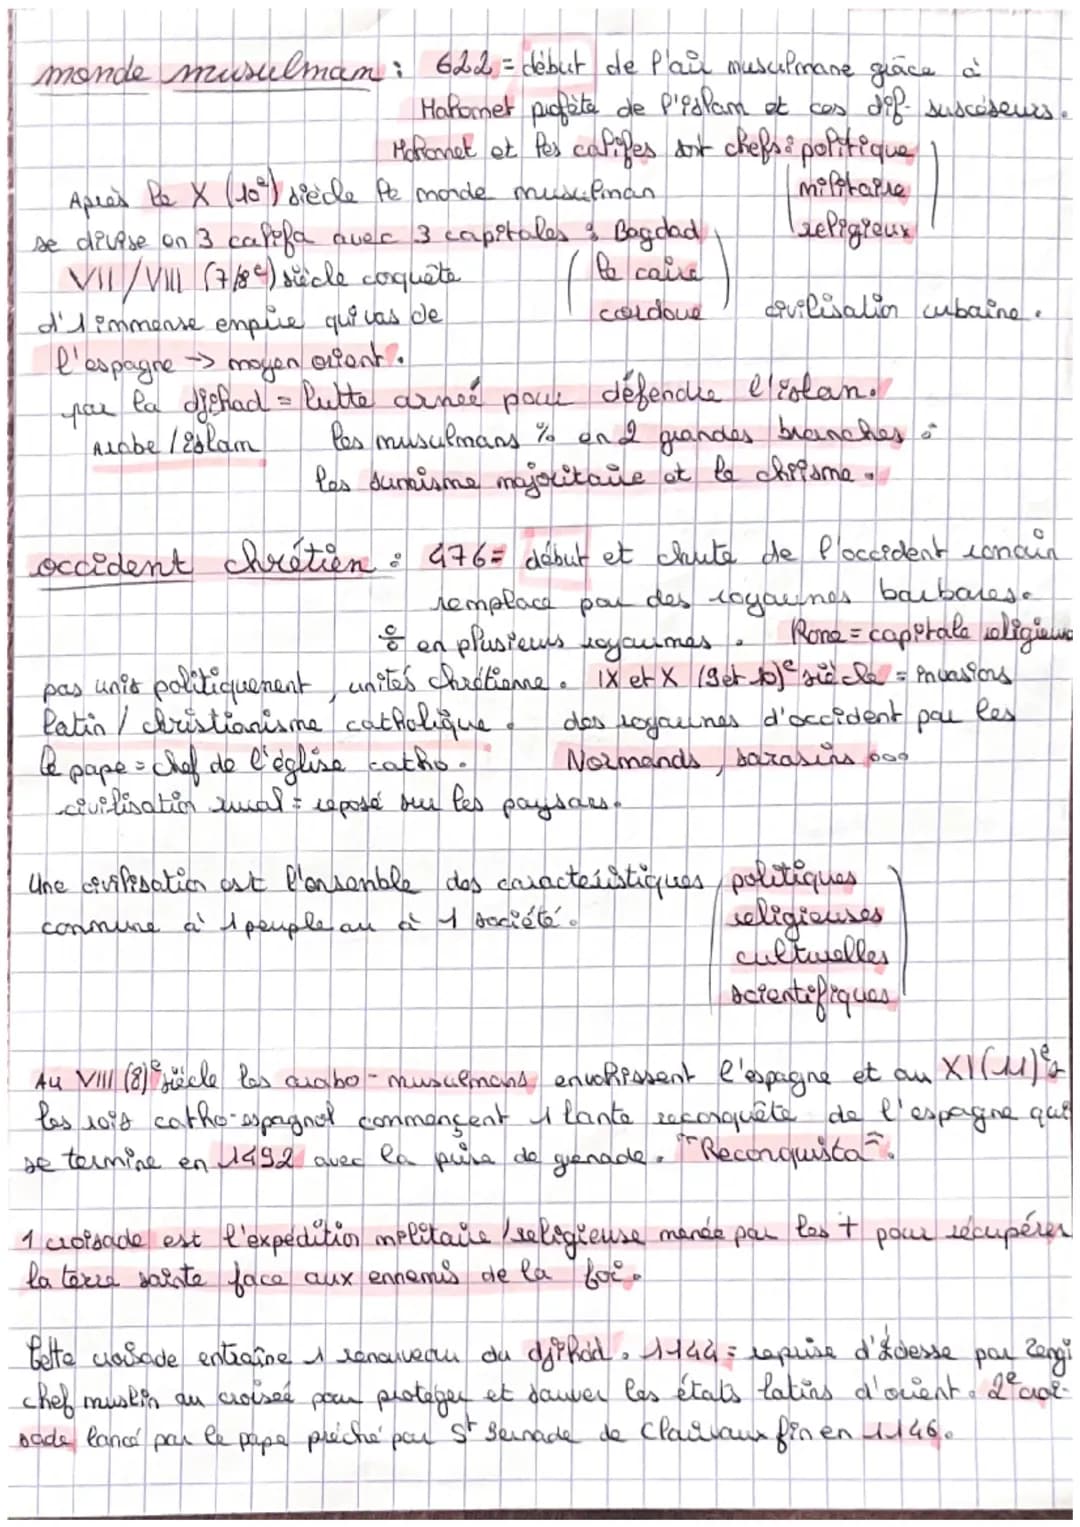 monde musulman : 622 = début de l'air musulmane grâce à
Mahomet profète de l'islam et ces dif. suscéseurs.
Mahomet et les califes sont chefs : politique
militaire
religieux
Après le X (10e) siècle le monde musulman
se divise en 3 califa avec 3 capitales : Bagdad
le caire
cordoue
VII/VIII (7/8e) siècle coquête
d'1 immense empire qui vas de
l'espagne -> moyen orient.
civilisation urbaine.
par la djihad = lutte armée pour défendre l'islam.
Arabe / islam
les musulmans % en 2 grandes branches :
les sunnisme majoritaire et le chiisme.
occident chrétien : 476 = début et chute de l'occident romain
remplace par des royaumes barbares.
% en plusieurs royaumes. Rome = capitale religieuse
pas unis politiquement, unités chrétienne.
IX et X (9 et 10)e siècle = invasions
des royaumes d'occident par les
Normands, sarasins ...
latin / christianisme catholique.
le pape = chef de l'église catho.
civilisation rural = reposé sur les paysans.
Une civilisation est l'ensemble des caractéristiques politiques
religieuses
culturelles
scientifiques
commune à 1 peuple ou à 1 société.
Au VIII (8)e siècle les arabo-musulmans envahissent l'espagne et au XI (11)e s
les rois catho-espagnol commençent 1 lante reconquête de l'espagne qui
se termine en 1492 avec la prise de grenade. "Reconquista".
1 croisade est l'expédition militaire / religieuse menée par les + pour récupérer
la terre sainte face aux ennemis de la foi.
Cette croisade entraîne 1 renouveau du djihad. 1144 = reprise d'Édesse par Zengi
chef muslin au croiseé pour protéger et sauver les états latins d'orient. 2e croi-
sade lancé par le pape prêché par St Bernade de Clairvaux fin en 1146.